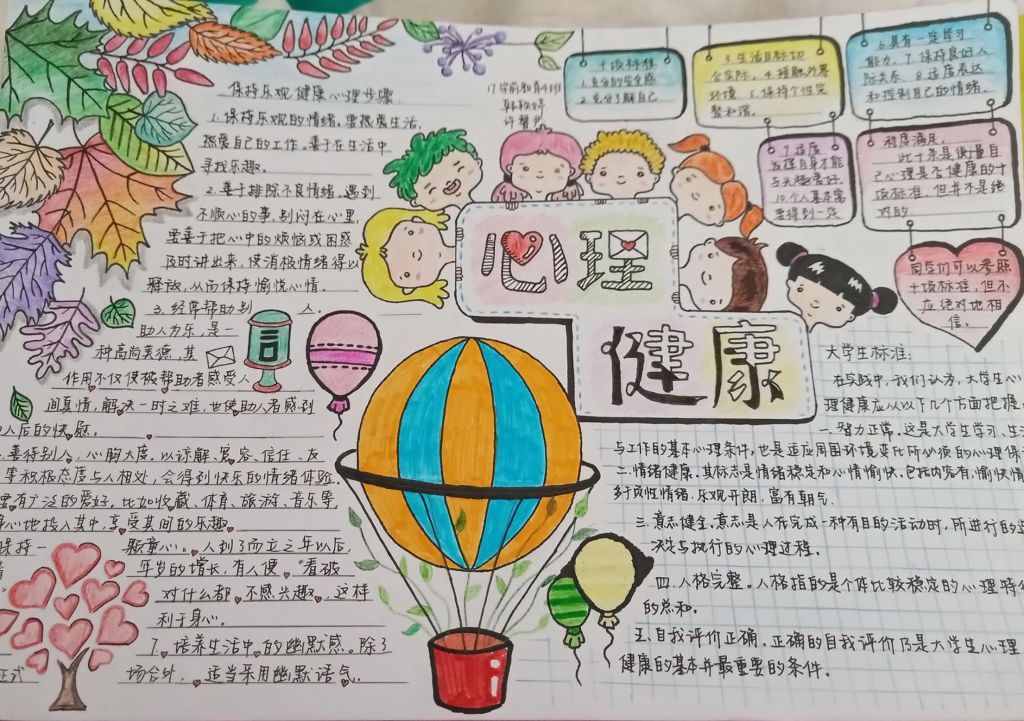 保持乐观健康心理步骤
1.保持乐观的情绪。要热爱生活,
热爱自己的工作。善于在生活中
寻找乐趣。
2.善于排除不良情绪。遇到
不顺心的事,别闷在心里,
要善于把心中的烦恼或困惑
及时讲出来,使消极情绪得以
释放,从而保持愉悦心情。
3.经常帮助别人。
助人为乐,是一
种高尚美德,其
作用不仅使被帮助者感受人
间真情,解决一时之难,也使助人者感到
助人后的快慰。
善待别人,心胸大度,以谅解、宽容、信任、友
等积极态度与人相处,会得到快乐的情绪体验
要有广泛的爱好,比如收藏、体育、旅游、音乐等
身心地投入其中,享受其间的乐趣。
保持一颗童心。人到了而立之年以后,
年岁的增长,有人便"看破
对什么都不感兴趣,这样
利于身心。
7.培养生活中的幽默感。除了
正式场合外,适当采用幽默语气。
17学前教育4班
心理
健康
十项标准
1.充分的安全感
2.充分了解自己
3.生活目标切
合实际。4.接触外界
环境 5.保持个性完
整和谐。
6.具有一定学习
能力。7.保持良好人
际关系 8.适度表达
和控制自己的情绪。
9.适度
发挥自身才能
与兴趣爱好
10.个人基本需
要得到一定
程度满足。
此十条是衡量自
己心理是否健康的十
项标准,但并不是绝
对的
同学们可以参照
十项标准,但不
应绝对地相
信。
大学生标准:
在实践中,我们认为,大学生心
理健康应从以下几个方面把握。
一.智力正常。这是大学生学习、生活
与工作的基本心理条件,也是适应周围环境变化所必须的心理保
二.情绪健康。其标志是情绪稳定和心情愉快。包括内容有,愉快情
多于负性情绪,乐观开朗,富有朝气
三.意志健全,意志是人在完成一种有目的活动时,所进行的选
决定与执行的心理过程。
四.人格完整。人格指的是个体比较稳定的心理特征
的总和。
五.自我评价正确。正确的自我评价乃是大学生心理
健康的基本并最重要的条件。